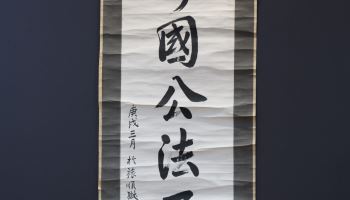 國公法
庚戌三月 於旅順獄